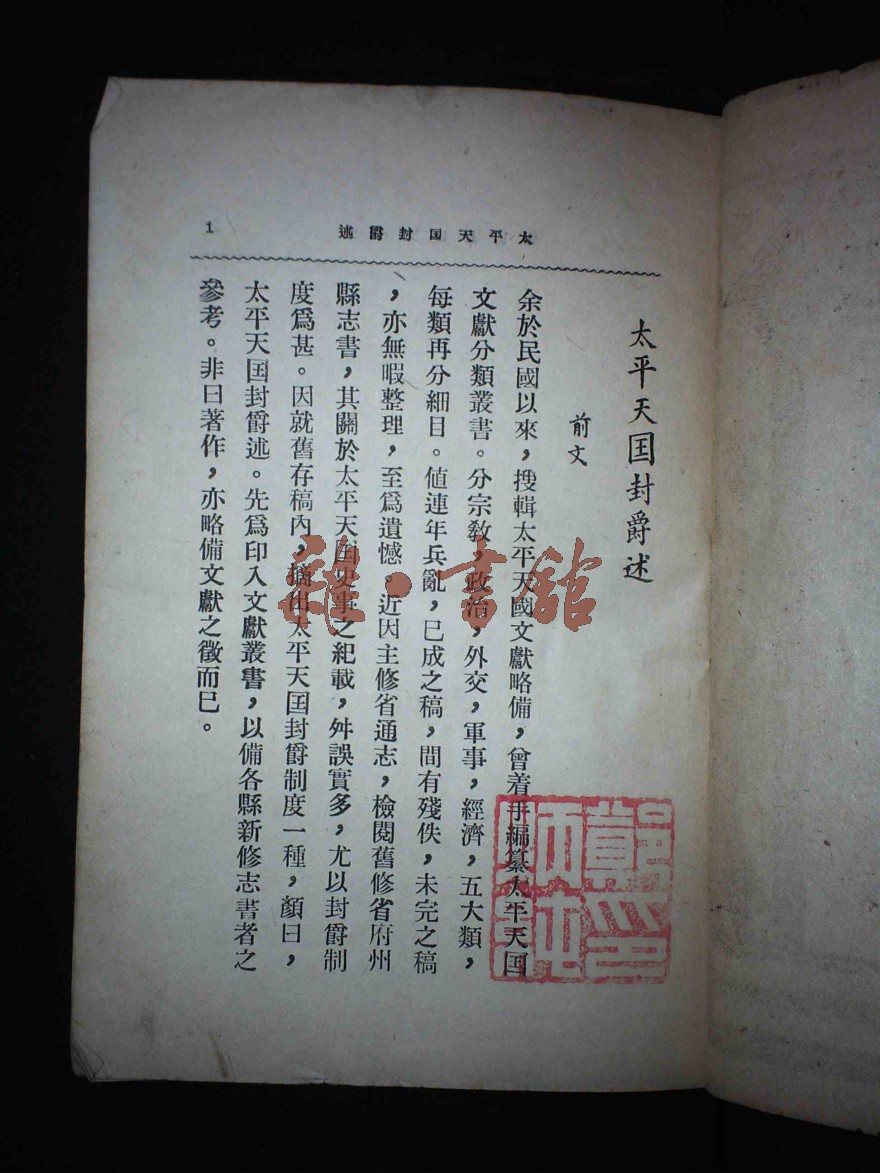 太平天囯封爵述
1
太平天囯封爵述
前文
余於民國以來，搜輯太平天國文獻略備，曾着手編纂太平天囯
文獻分類叢書。分宗教，政治，外交，軍事，經濟，五大類，
每類再分細目。値連年兵亂，已成之稿，間有殘佚，未完之稿
，亦無暇整理，至爲遺憾。近因主修省通志，檢閱舊修省府州
縣志書，其關於太平天囯史事之紀載，舛誤實多，尤以封爵制
度爲甚。因就舊存稿內，摘出太平天囯封爵制度一種，顏曰，
太平天囯封爵述。先爲印入文獻叢書，以備各縣新修志書者之
參考。非曰著作，亦略備文獻之徵而已。
雜·書館